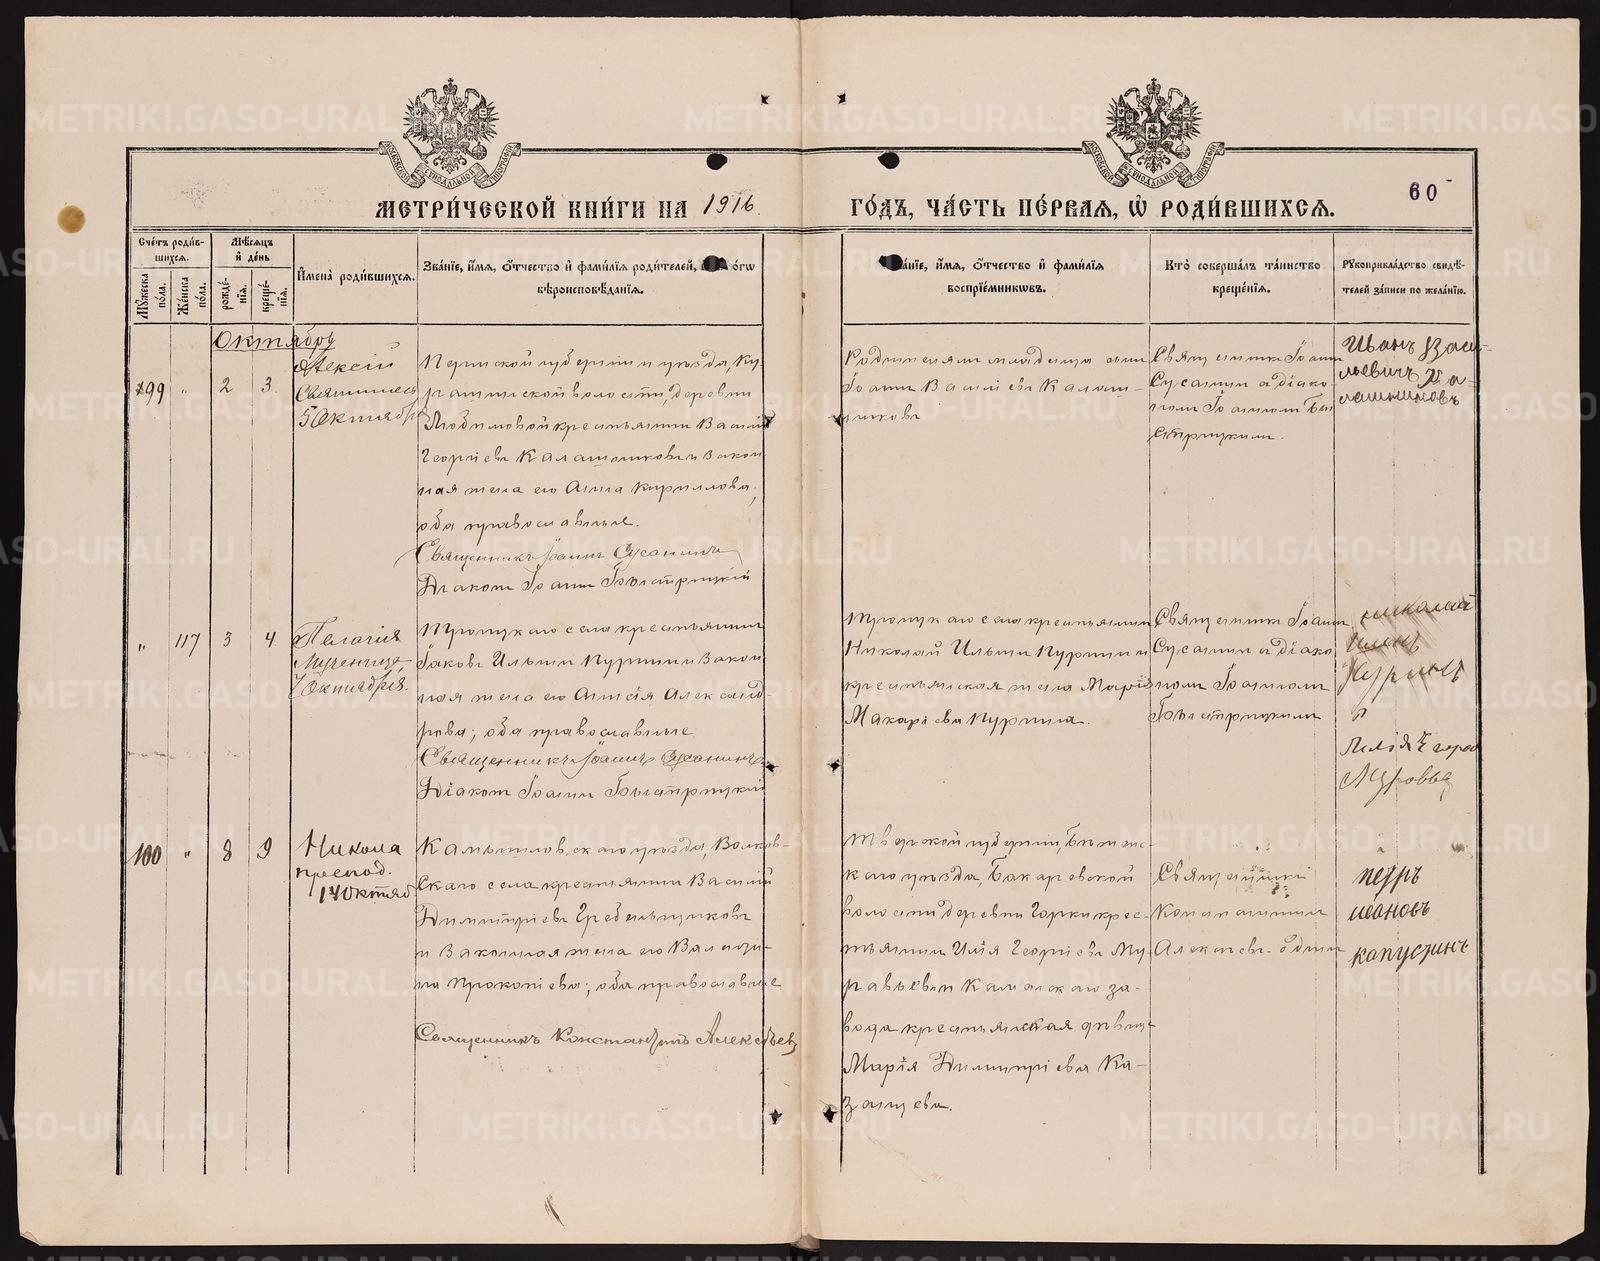 МЕТРИ́ЧЕСКОЙ КНИ́ГИ НА 1916
ГО́ДЪ, ЧА́СТЬ ПЕ́РВАЯ, Ѡ҆ РОДИ́ВШИХСѦ.
60
Сче́тъ роди́в-
шихся.
Мѣ́сяцъ
и҆ де́нь
Мꙋ́жеска
по́ла.
Же́нска
по́ла.
рожде́-
нїя.
креще́-
нїя.
И҆мена̀ роди́вшихся.
Зва́нїе, и҆́мя, ѻ҆́тчество и҆ фами́лїя роди́телей,
вѣроисповѣ́данїя.
и҆́мя, ѻ҆́тчество и҆ фами́лїя
воспрїе́мникѡвъ.
Кто̀ соверша́лъ та́инство
креще́нїя.
Рꙋкоприкла́дство свидѣ́-
телей за́писи по жела́нїю.
Октябрь
99 " 2 3
Алексій
Святитель
5 Октября
Пермской губерніи и уѣзда, Ку-
деревни
Любимовой крестьянинъ Василій
Георгіевъ Калашниковъ и закон-
ная жена его Анна Кириллова,
оба православные.
Священникъ Іоаннъ Сусанинъ
Діаконъ Іоаннъ Быстрицкій
Родитель младенца
Іоаннъ Васильевъ Калаш-
никовъ
Священникъ Іоаннъ
Сусанинъ съ діако-
номъ Іоанномъ Бы-
стрицкимъ.
Иванъ Васи-
льевичъ Ка-
лашниковъ
" 117 3 4
Пелагія
Мученица
7 Октября
села крестьянинъ
Іаковъ Ильинъ Куринъ и закон-
ная жена его Анисія Александ-
рова, оба православные
Священникъ Іоаннъ Сусанинъ
Діаконъ Іоаннъ Быстрицкій
села крестьянинъ
Николай Ильинъ Куринъ и
крестьянская жена Марія
Макаріева Курина.
Священникъ Іоаннъ
Сусанинъ съ діако
номъ Іоанномъ
Быстрицкимъ
николай
Илинъ
Куринъ
100 " 8 9
Никола
препод.
14 Октяб
Камышловскаго уѣзда, Волков-
скаго села крестьянинъ Василій
Димитріевъ Гребеньщиковъ
и законная жена его Валенти-
на Прокопіева, оба православные
Священникъ Константинъ Алексѣевъ
Тверской губерніи, Бѣжец-
каго уѣзда, Бакаревской
волости деревни Горки крес-
тьянинъ Илія Георгіевъ Му-
равьевъ и Каменскаго за-
вода крестьянская дѣвица
Марія Димитріева Ка-
занцева.
Священникъ
Константинъ
Алексѣевъ одинъ
петръ
ивановъ
капустинъ